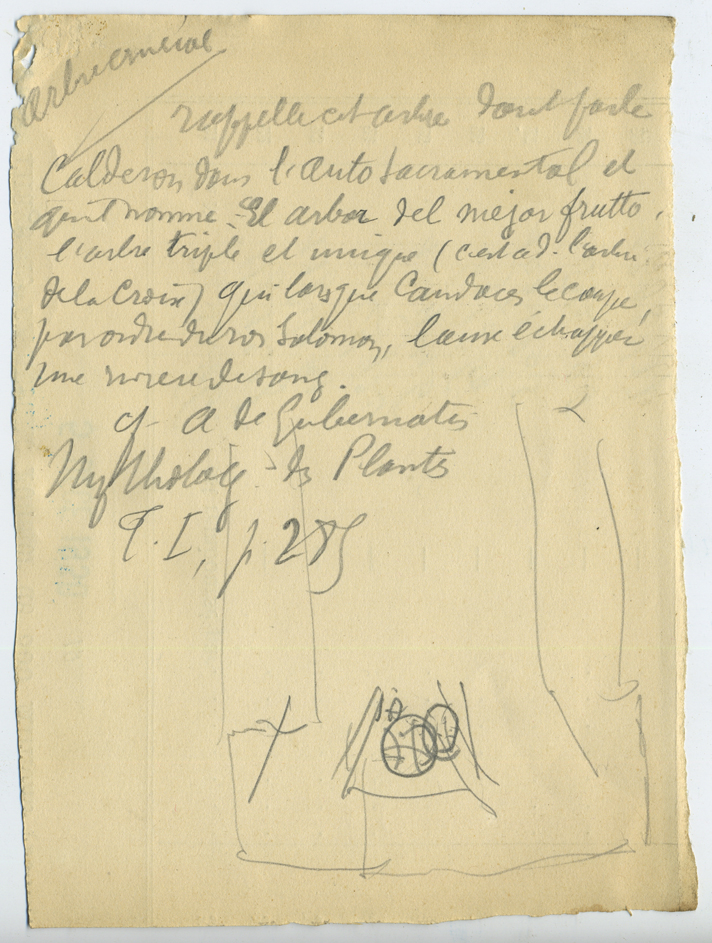 Arbre crucial
rappelle cet arbre dont parle
Calderon dans l'auto Sacramental et
qu'il nomme : El arbor del mejor frutto,
l'arbre triple et unique (c'est a d. l'arbre
de la Croix) qui lorsque Candaces le coupe,
par ordre du roi Salomon, laisse échapper
une
cf A de Gubernatis
Mythologie des Plantes
T. I, p. 285